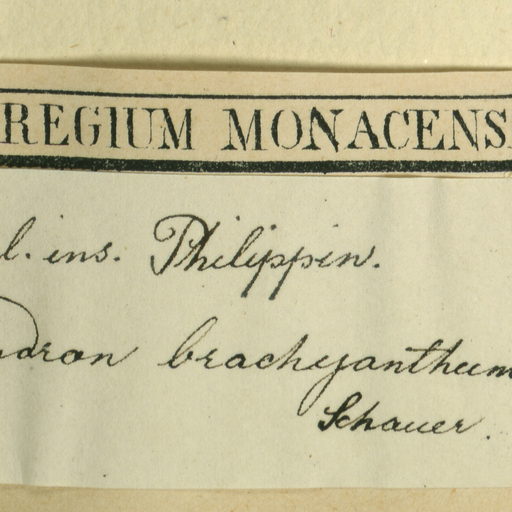 REGIUM MONACENS
l. ins. Philippin.
dron brachyanthum
Schauer.